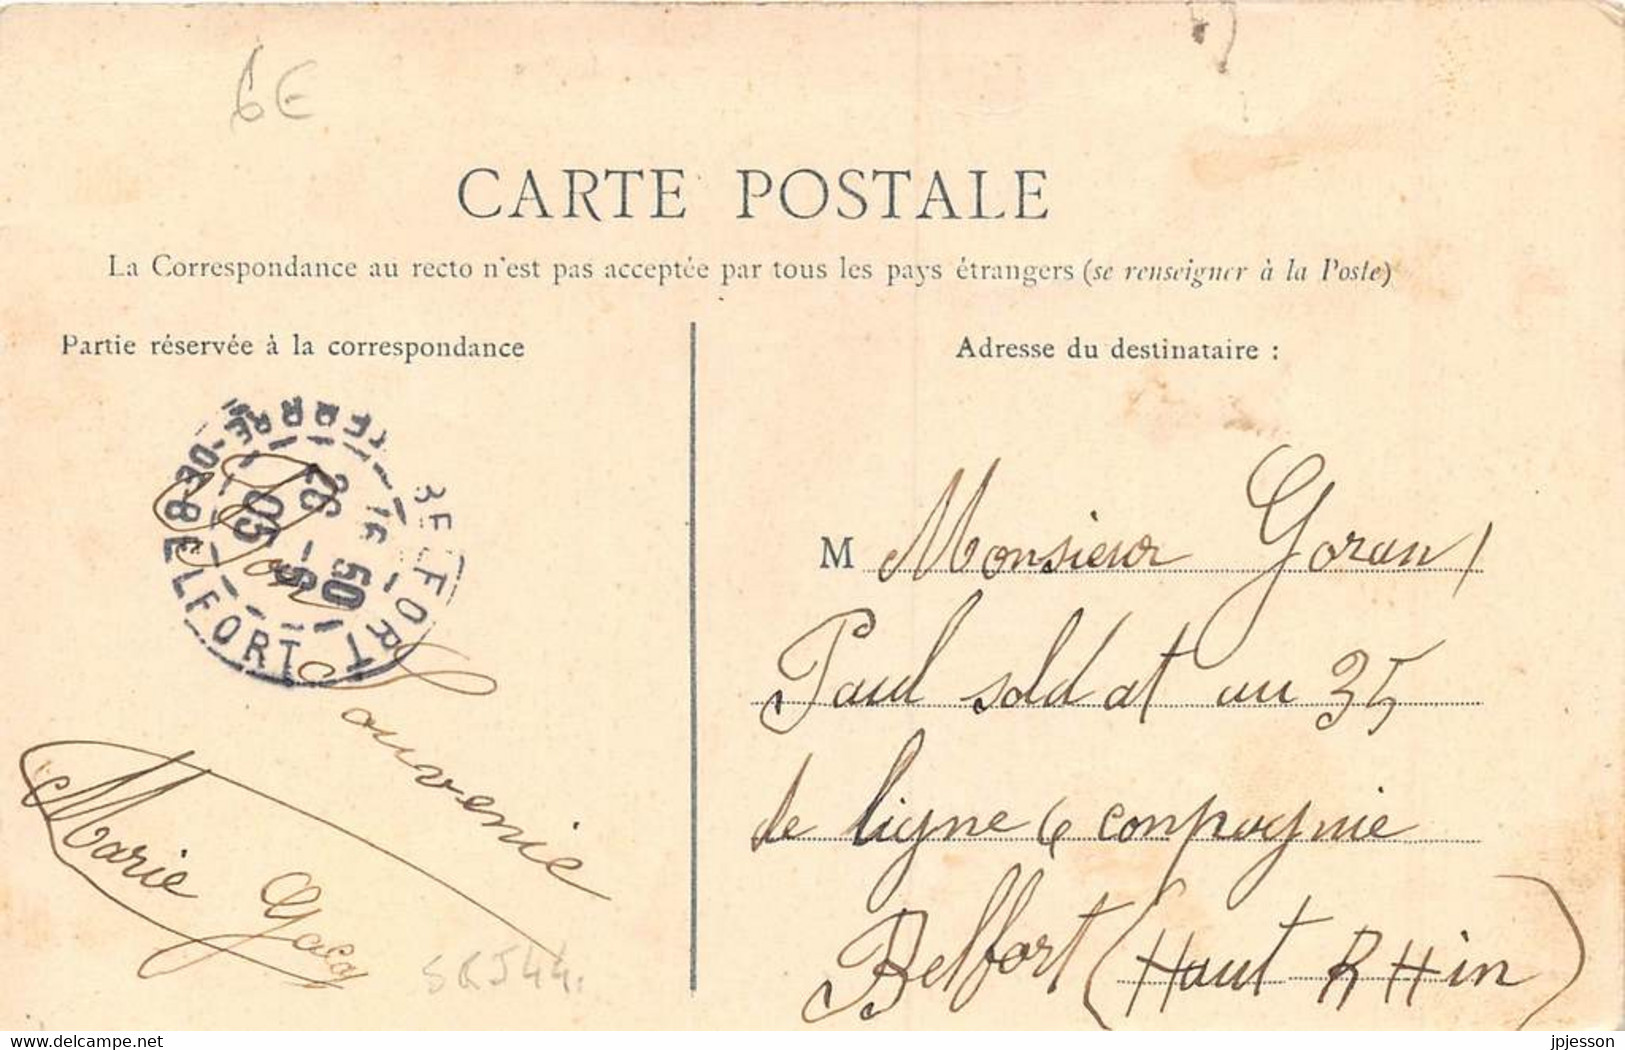 6€
CARTE POSTALE
La Correspondance au recto n'est pas acceptée par tous les pays étrangers (se renseigner à la Poste)
Partie réservée à la correspondance
Adresse du destinataire :
BELFORT
BELFORT
16 50
26 -6
05
Bon
Souvenie
Marie
M Monsieur Goran
Paul soldat au 35
de ligne 6 conpagnie
Belfort (Haut RHin)
www.delcampe.net
jpjesson